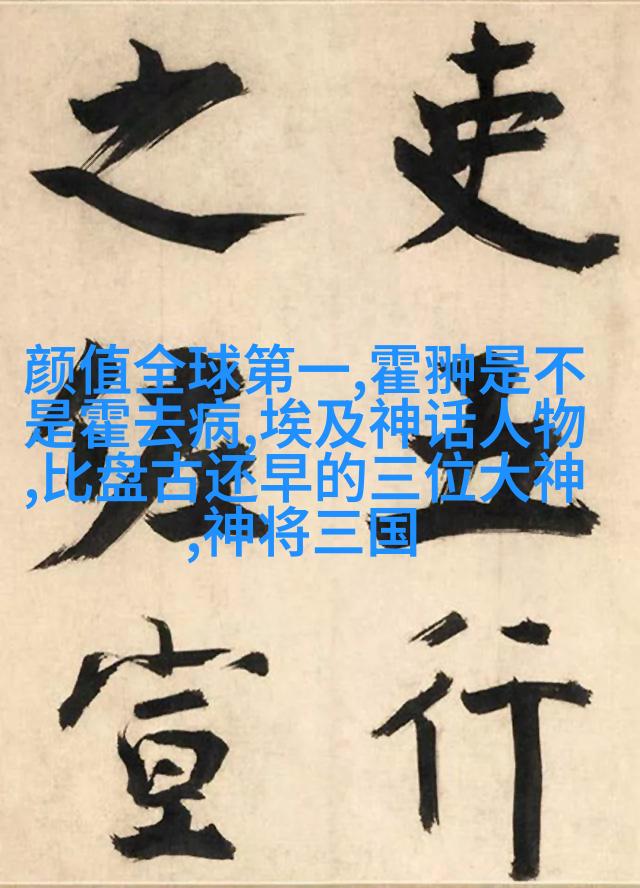 颜值全球第一,霍翀是不
是霍去病,埃及神话人物
,比盘古还早的三位大神
,神将三国
吏行
之宣